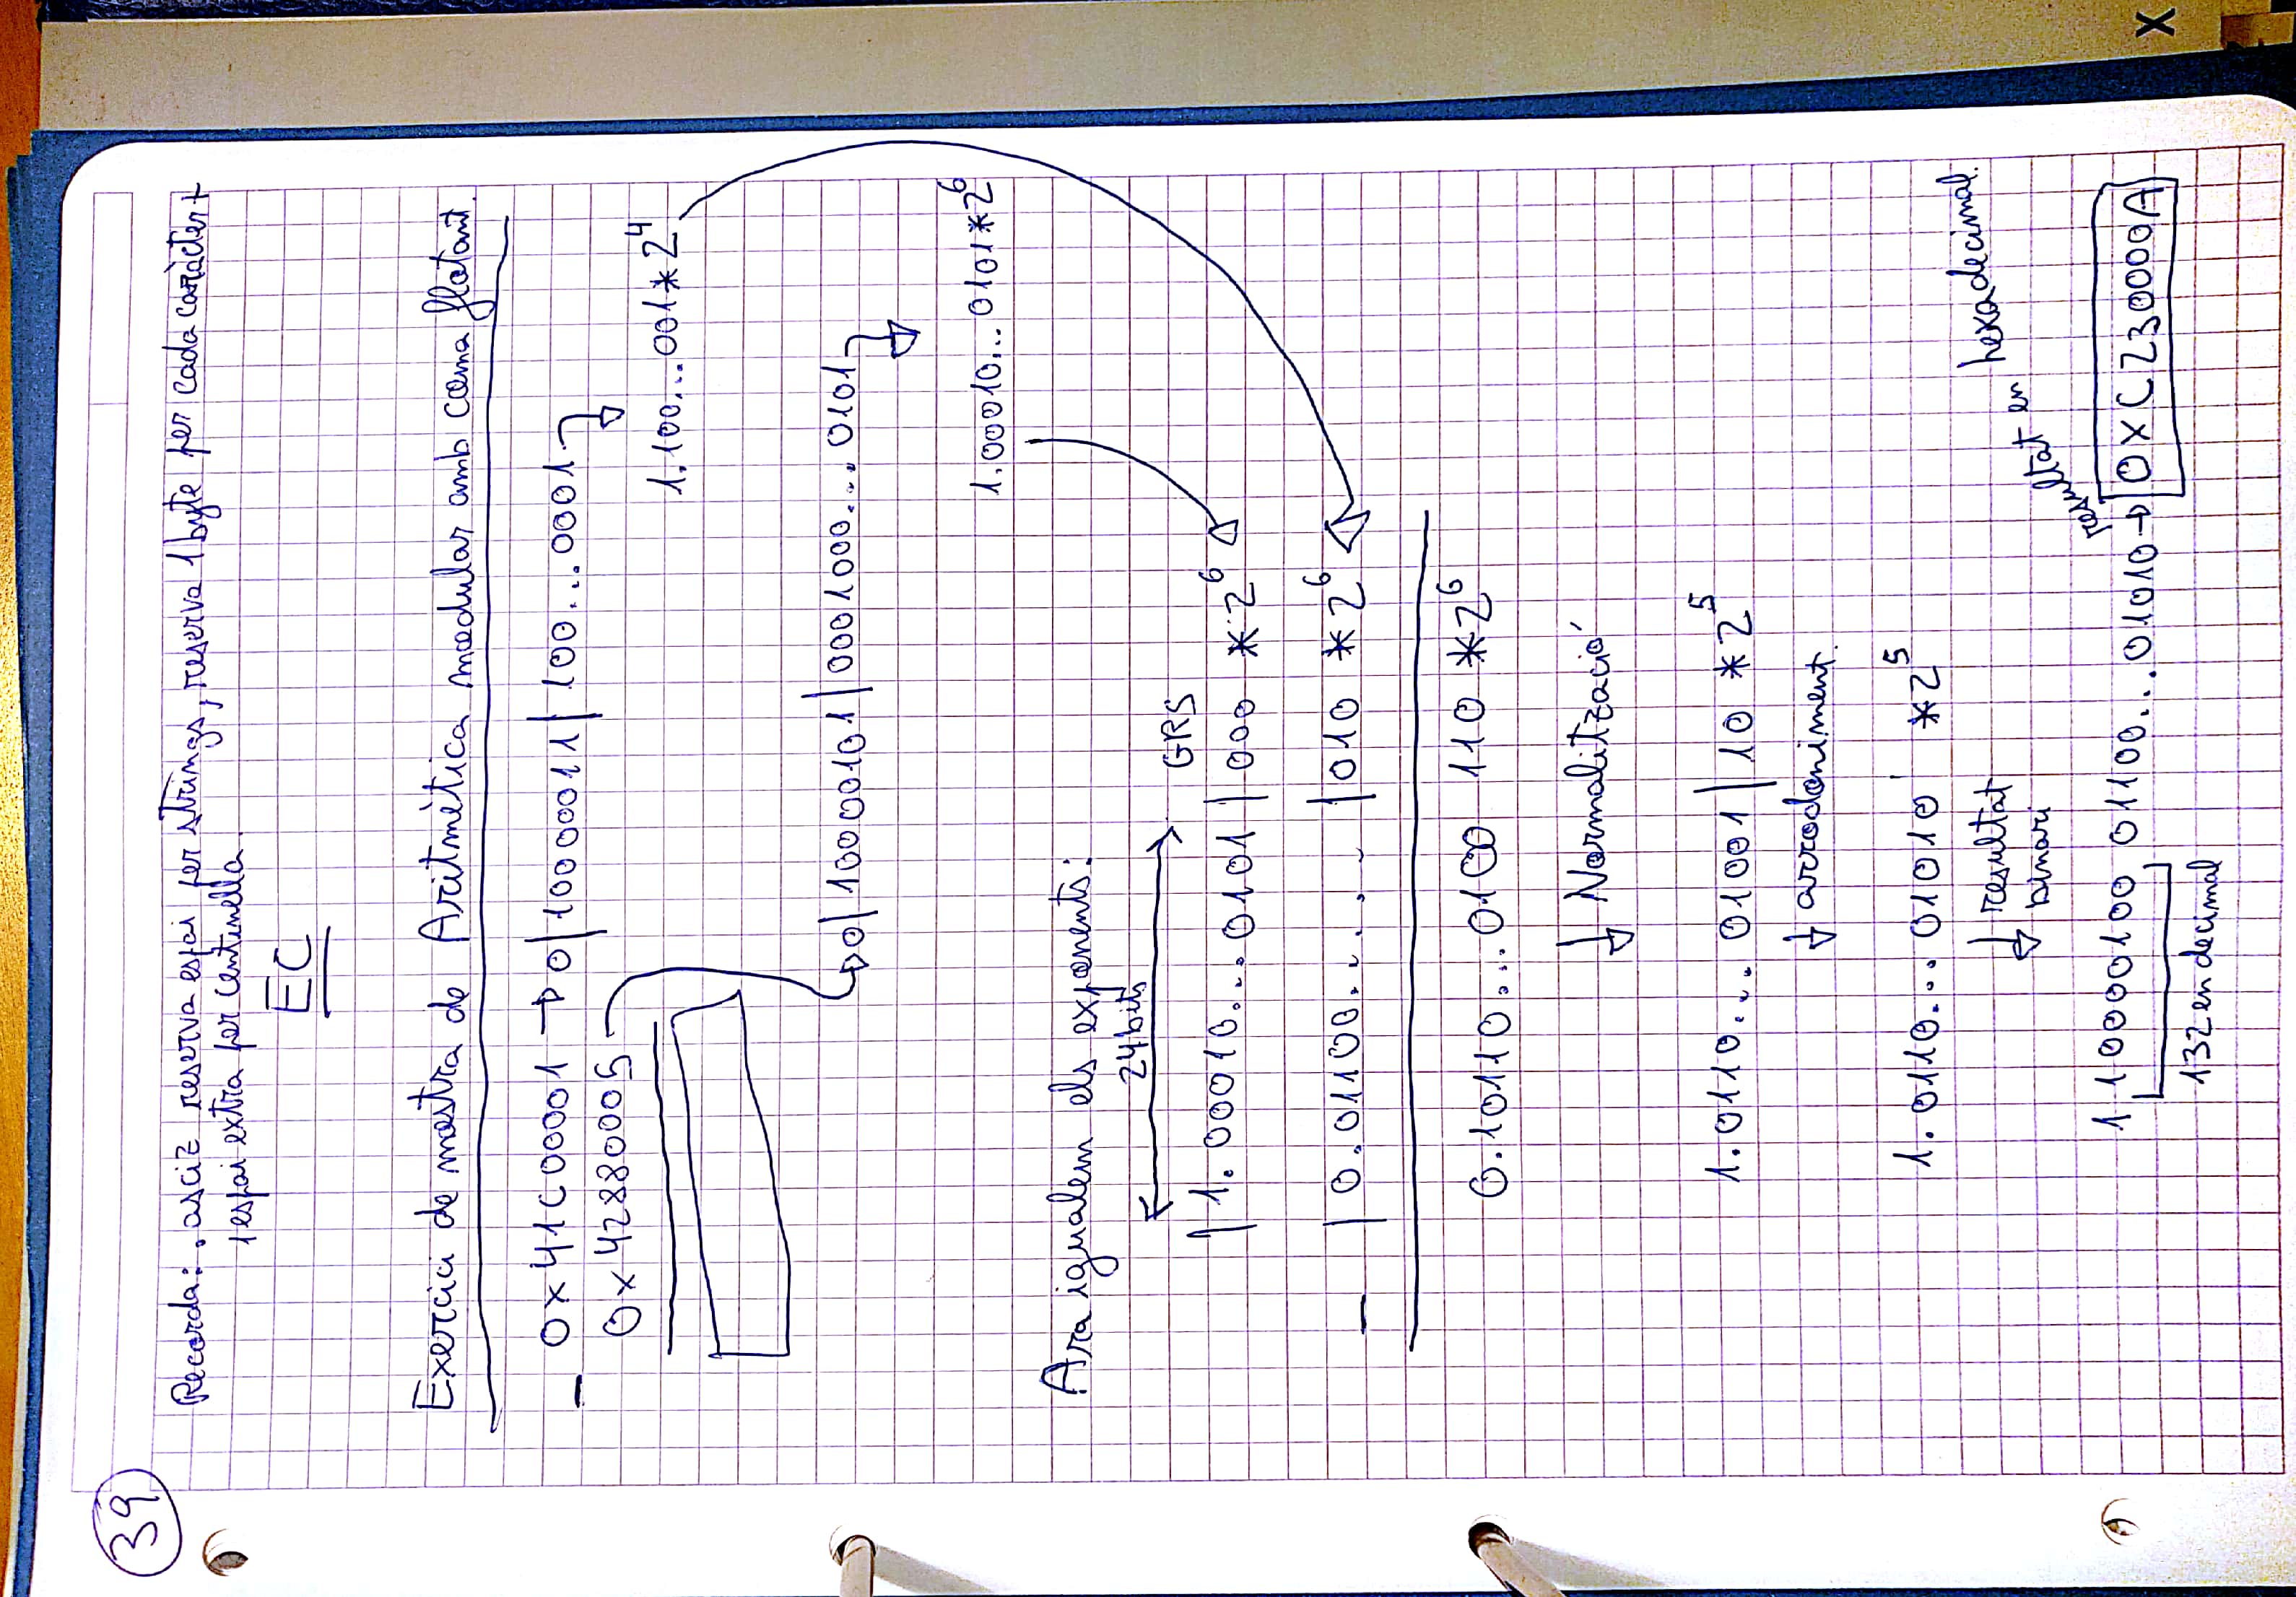 39
Recorda: .asciz reserva espai per strings, reserva 1 byte per cada caràcter +
1 espai extra per centinella.
EC
Exercici de mostra de Aritmètica modular amb coma flotant.
- 0x41C00001 → 0|10000011|100...0001
0x42880005
1.100...001*2^4
0|10000101|0001000...0101
1.00010...0101*2^6
Ara igualem els exponents:
24 bits
GRS
|1.00010...0101|000 *2^6
- |0.01100.....|010 *2^6
0.10110...0100 110 *2^6
↓ Normalització
1.0110...01001|10 *2^5
↓ arrodoniment.
1.0110...01010 *2^5
↓ resultat
binari
resultat en hexadecimal.
1 10000100 01100...01010 → 0XC230000A
132 en decimal
X